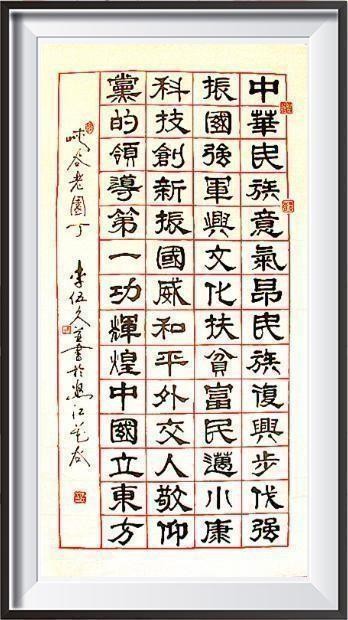 中華民族意氣昂民族復興步伐强
振國強軍興文化扶貧富民邁小康
科技創新振國威和平外交人敬仰
黨的領導第一功輝煌中國立東方
峡谷老園丁 李伍久並書於江谷